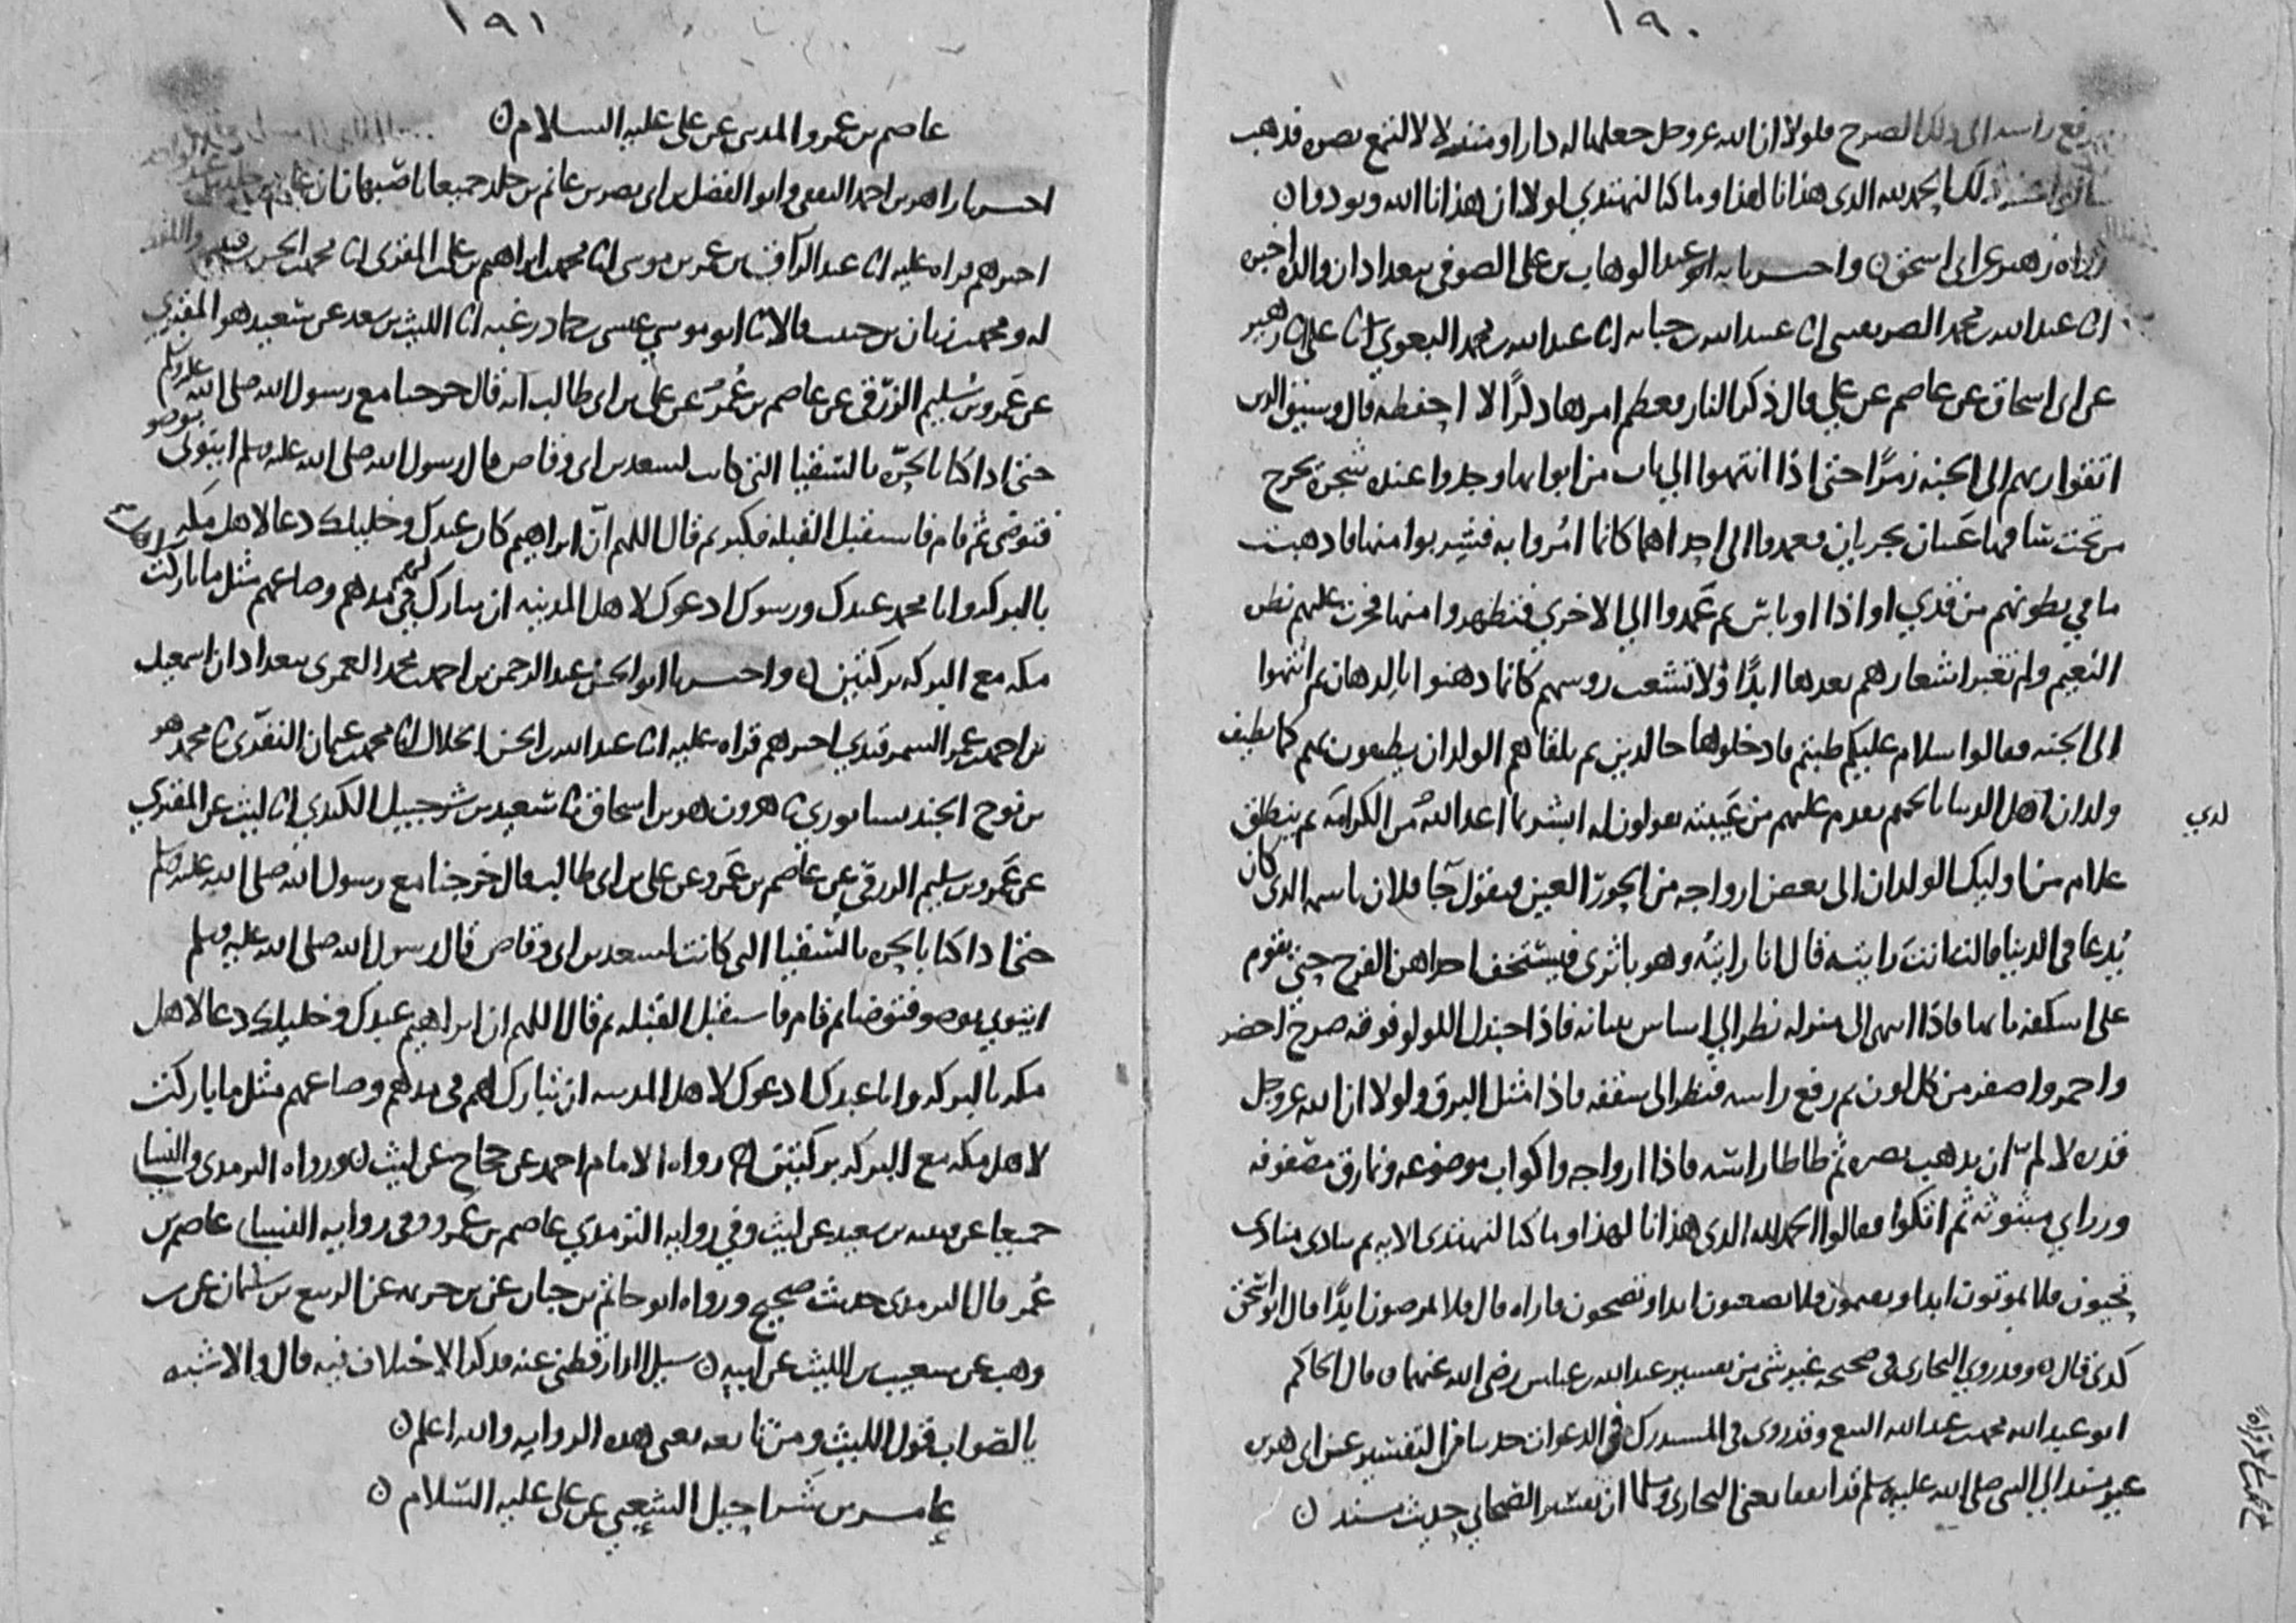 ١٩٠
رفع راسه الى ذلك الصرح فلولا ان الله عز وجل جعلها له دارا ومنزلا لالتمع بصره فذهب
ذلك الحمد لله الذي هدانا لهذا وما كنا لنهتدي لولا ان هدانا الله ونودوا ن
رواه زهير عن ابي اسحق ن واخبرنا به عبد الوهاب بن علي الصوفي ببغداد ان والده اخبره
انا عبد الله بن محمد الصريفيني انا عبيد الله بن حبابه انا عبد الله بن محمد البغوي نا علي انا زهير
عن ابي اسحاق عن عاصم عن علي قال ذكر النار فعظم امرها ذكرًا لا احفظه قال وسيق الذين
اتقوا ربهم الى الجنه زمرًا حتى اذا انتهوا الي باب من ابوابها وجدوا عنده شجرة يخرج
من تحت ساقها عَينان تجريان فعمدوا الى احداهما كانما امُروا به فشربوا منها فاذهبت
ما في بطونهم من قذي او اذا او باس ثم عَمدوا الي الاخري فتطهروا منها فجرت عليهم نضره
النعيم ولم تغير اشعارهم بعدها ابدًا ولا تشعث روسهم كانما دهنوا بالدهان ثم انتهوا
الى الجنه فقالوا سلام عليكم طبتم فادخلوها خالدين ثم تلقاهم الولدان يطيفون بهم كما يطيف
ولدان اهل الدنيا بالحميم يقدم عليهم من غيبته يقولون له ابشر بما اعد اللهُ لك من الكرامه ثم ينطلق
لدي
غلام من اوليك الولدان الى بعض ازواجه من الحور العين فيقول جا فلان باسمه الذي كان
يُدعا في الدنيا قالت انت رايته قال انا رايتُه وهو باثري فيستخف احداهن الفرح حتى تقوم
على اسكفه بابها فاذا انتهى الى منزله نظر الي اساس بنيانه فاذا جندل اللولو فوقه صرح اخضر
واحمر واصفر من كل لون ثم رفع راسه فنظر الى سقفه فاذا مثل البرق ولولا ان الله عز وجل
قدره لا لمّ ان يذهب بصره ثم طاطا راسه فاذا ازواجه واكواب موضوعه ونمارق مصفوفه
وزرابي مبثوثه ثم اتكوا فقالوا الحمد لله الذي هدانا لهذا وما كنا لنهتدى الايه ثم ينادى منادى
تحيون فلا تموتون ابدا وتقيمون فلا تظعنون ابدا وتصحون فاراه قال فلا تمرضون ابدًا قال ابو اسحق
كذى قال ن وقد روي البخاري في صحيحه غير شي من تفسير عبد الله بن عباس رضي الله عنهما ن قال الحاكم
ابو عبد الله محمد بن عبد الله البيع وقد روى في المستدرك في الدعوات حديثا في التفسير عن ابي هريره
غير مسند الي النبي صلى الله عليه وسلم قد اتفقا يعني البخاري ومسلما ان تفسير الصحابي حديث مسند ن
١٩١
عاصم بن عمرو المدني عن علي عليه السلام ن
اخبرنا زاهر بن احمد الثقفي وابو الفضل بن ابي نصر بن غانم بن خالد جميعا باصبهان ان
اخبرهم قراه عليه انا عبد الرزاق بن عمر بن موسى انا محمد بن ابراهيم بن علي المقري انا محمد بن الحسن بن قتيبه
له ومحمد بن زبان بن حبيب قالا نا ابو موسي عيسى بن حماد زغبه انا الليث بن سعد عن سعيد هو المقبري
عن عَمرو بن سُليم الزرقي عن عاصم بن عُمرَ عن علي بن ابي طالب انه قال خرجنا مع رسول الله صلى الله عليه وسلم
حتى اذا كنا بالحرّه بالسقيا التي كانت لسعد بن ابي وقاص قال رسول الله صلى الله عليه وسلم ايتوني بوضو
فتوضى ثم قام فاستقبل القبله فكبر ثم قال اللهم ان ابراهيم كان عبدك وخليلك دعا لاهل مكه
بالبركه وانا محمد عبدك ورسولك ادعوك لاهل المدينه ان تبارك لهم في مدهم وصاعهم مثل ما باركت
مكه مع البركه بركتين ن واخبرنا ابو الحسن عبد الرحمن بن احمد بن محمد العمري ببغداد ان اسمعيل
بن احمد بن عمر السمرقندي اخبرهم قراه عليه انا عبد الله بن الحسن الخلال انا محمد بن عثمان النفري نا محمد هو
بن نوح الجنديسابوري نا هرون هو بن اسحاق نا سعيد بن شرحبيل الكندي انا ليث عن المقبري
عن عَمرو بن سليم الزرقي عن عاصم بن عَمرو عن علي بن ابي طالب قال خرجنا مع رسول الله صلى الله عليه وسلم
حتى اذا كنا بالحره بالسقيا التي كانت لسعد بن ابي وقاص قال رسول الله صلى الله عليه وسلم
ايتوني بوضو فتوضا ثم قام فاستقبل القبله ثم قال اللهم ان ابراهيم عبدك وخليلك دعا لاهل
مكه بالبركه وانا عبدك ادعوك لاهل المدينه ان تبارك لهم في مدهم وصاعهم مثل ما باركت
لاهل مكه مع البركه بركتين ن رواه الامام احمد عن حجاج عن ليث ن ورواه الترمذي والنسا
جميعا عن قتيبه بن سعيد عن ليث وفي روايه الترمذي عاصم بن عَمرو وفي روايه النساي عاصم بن
عُمر قال الترمذي حديث صحيح ورواه ابو حاتم بن حبان عن بن خزيمه عن الربيع بن سليمان عن بن
وهب عن شعيب بن الليث عن ابيه ن سيل الدارقطني عنه فذكر الاختلاف فيه قال والاشبه
بالصواب قول الليث ومن تابعه يعني هذه الروايه والله اعلم ن
عامر بن شَراحيل الشعبي عن علي عليه السَلام ن